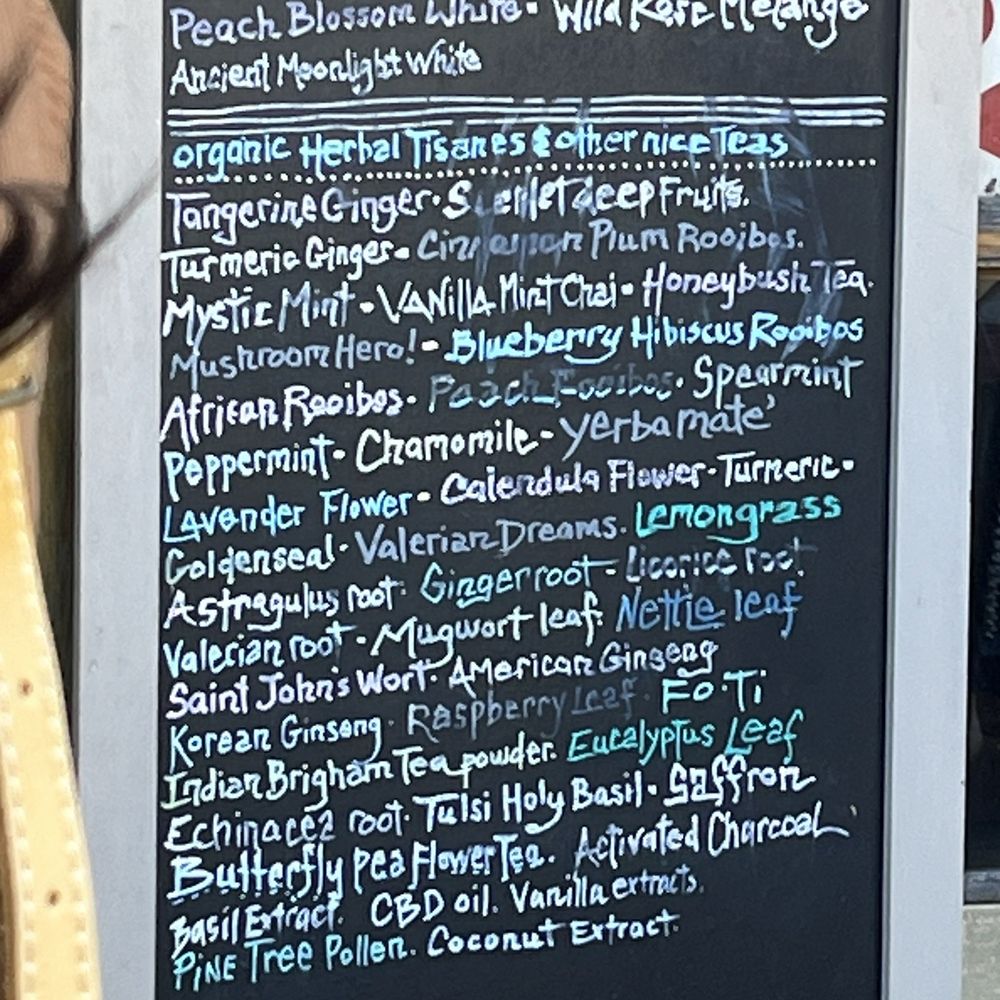 Peach Blossom White - Wild Rose Melange
Ancient Moonlight White
organic Herbal Tisanes & other nice Teas
Tangerine Ginger. deep Fruits.
Turmeric Ginger - Cinnamon Plum Rooibos.
Mystic Mint - VANillA Mint Chai - Honeybush Tea.
Mushroom Hero! - Blueberry Hibiscus Rooibos
African Rooibos. Peach Rooibos. Spearmint
Peppermint - Chamomile - yerba mate'
Lavender Flower - Calendula Flower - Turmeric -
Goldenseal. Valerian Dreams. Lemongrass
Astragulus root. Ginger root - Licorice root.
Valerian root - Mugwort leaf. Nettle leaf
Saint John's Wort. American Ginseng
Korean Ginseng. Raspberry Leaf. Fo. Ti
Indian Brigham Tea powder. Eucalyptus Leaf
Echinacea root. Tulsi Holy Basil. Saffron
Butterfly Pea Flower Tea. Activated Charcoal
Basil Extract. CBD oil. Vanilla extracts.
PiNE Tree Pollen. Coconut Extract.